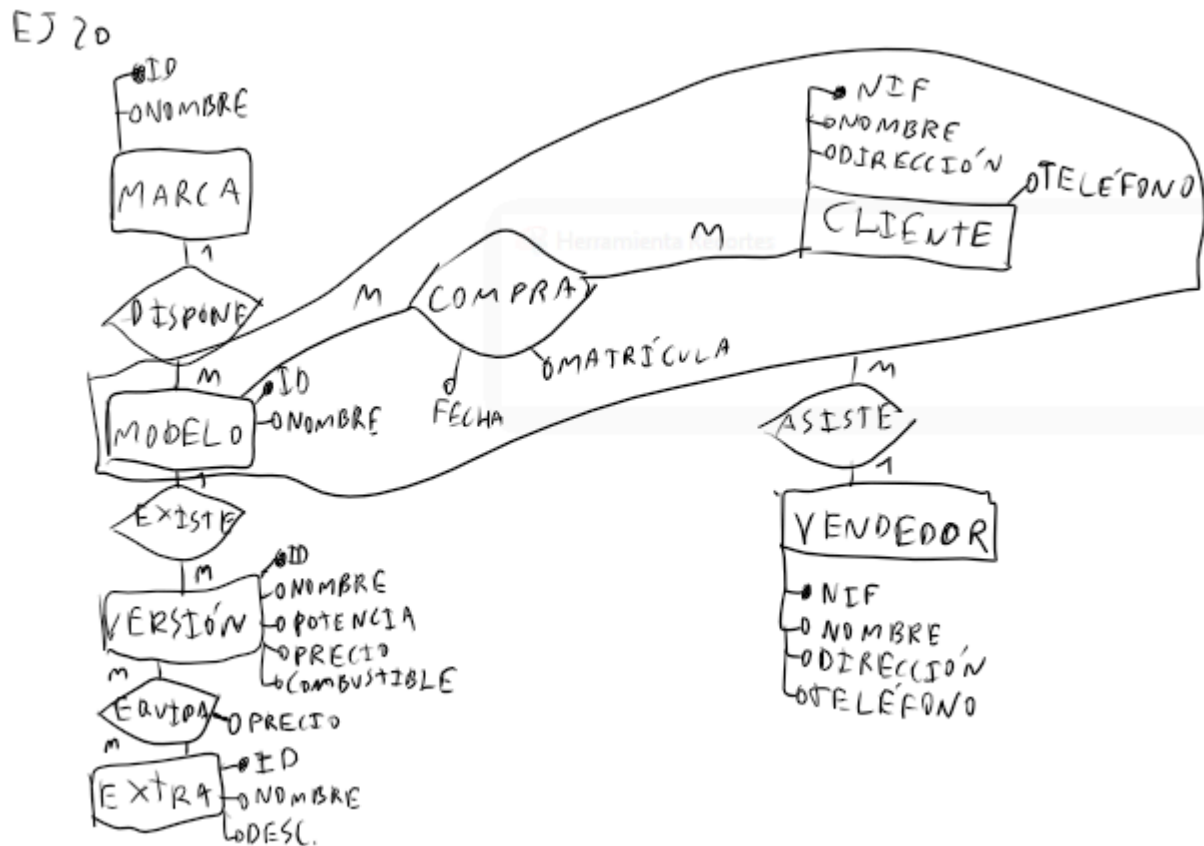 EJ 20
ID
NOMBRE
MARCA
1
DISPONE
M
MODELO
ID
NOMBRE
1
EXISTE
M
VERSIÓN
ID
NOMBRE
POTENCIA
PRECIO
COMBUSTIBLE
M
EQUIPA
PRECIO
M
EXTRA
ID
NOMBRE
DESC.
M
COMPRA
M
FECHA
MATRÍCULA
Herramienta Recortes
NIF
NOMBRE
DIRECCIÓN
TELÉFONO
CLIENTE
M
ASISTE
1
VENDEDOR
NIF
NOMBRE
DIRECCIÓN
TELÉFONO